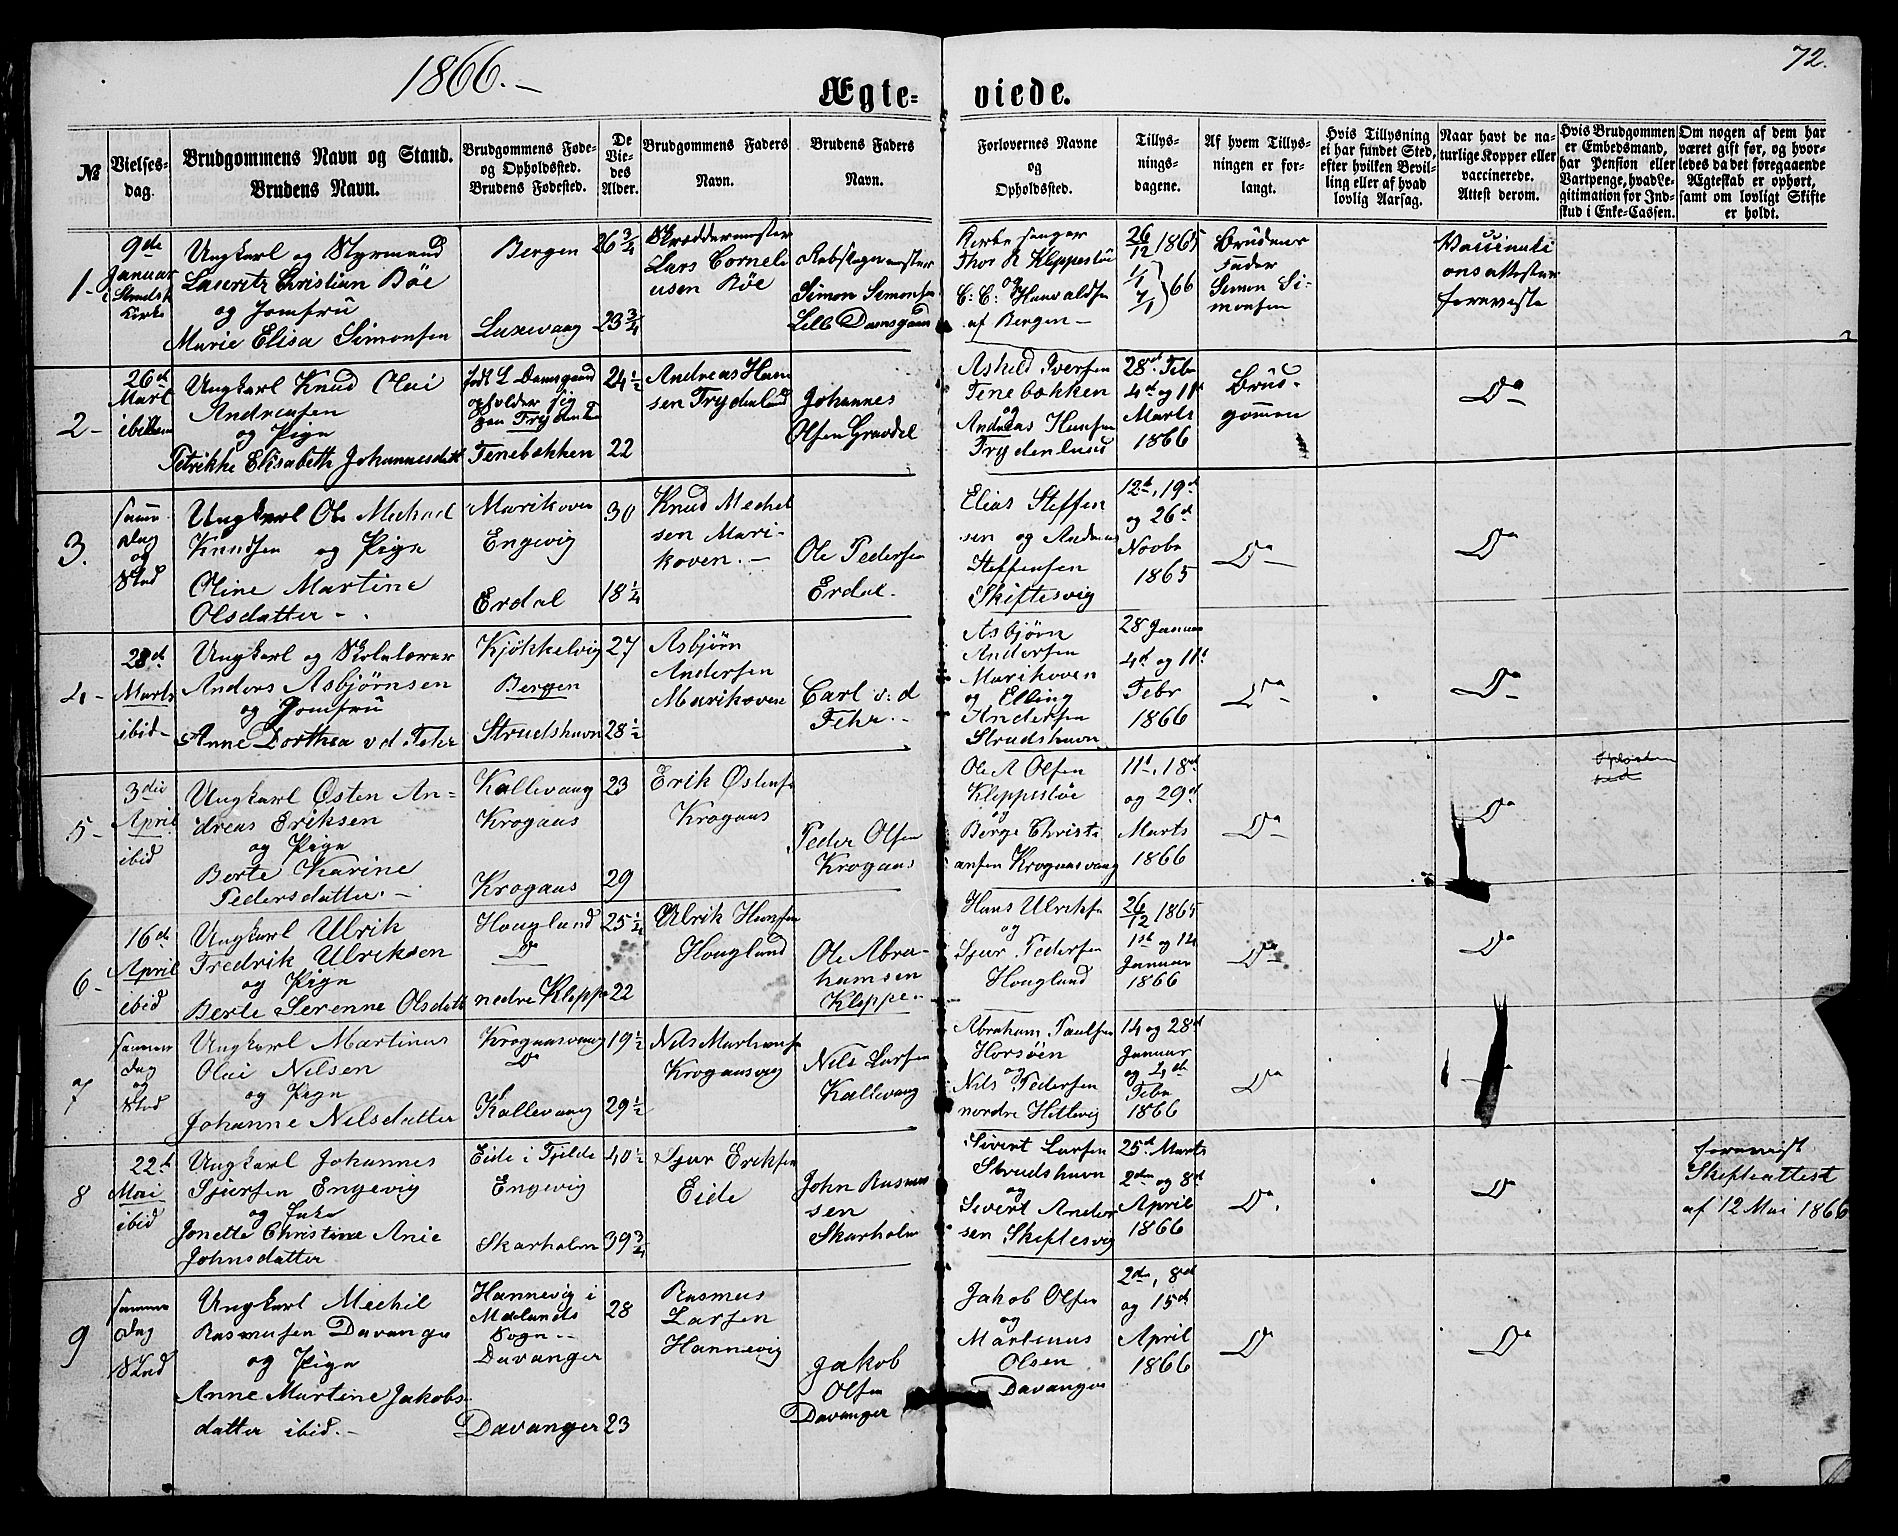 1866.-
72.
Ægte= viede.
№
Vielses-
dag.
Brudgommens Navn og Stand.
Brudens Navn.
Brudgommens Føde-
og Opholdssted.
Brudens Fødested.
De
Vie-
des
Alder.
Brudgommens Faders
Navn.
Brudens Faders
Navn.
Forlovernes Navne
og
Opholdssted.
Tillys-
nings-
dagene.
Af hvem Tillys-
ningen er for-
langt.
Hvis Tillysning
ei har fundet Sted,
efter hvilken Bevil-
ling eller af hvad
lovlig Aarsag.
Naar havt de na-
turlige Kopper eller
vaccinerede.
Attest derom.
Hvis Brudgommen
er Embedsmand,
har Pension eller
Vartpenge, hvad Le-
gitimation for Ind-
skud i Enke-Cassen.
Om nogen af dem har
været gift før, og hvor-
ledes da det foregaaende
Ægteskab er ophørt,
samt om lovligt Skifte
er holdt.
1-
9de
Januar
Kirke
Ungkarl og Styrmand
Lauritz Christian Böe
og Jomfru
Marie Elisa Simonsen
Bergen
Laxevaag
26 3/4
23 3/4
Skræddermester
Lars Corneli
usen Böe
Rebslagermester
Simon Simonsen
Lille Damsgaard
Kirkesanger
Thor R Kleppestöe
og
C: C: Haavaldsen
af Bergen-
26/12 1865
1/1 7/1 } 66
Brudens
Fader
Simon Si-
monsen
Vaccinati
onsattester
foreviste
2-
26d
Mart
ibidem
Ungkarl Knud Olai
Andreasen
og Pige
Petrikke Elisabeth Johannesdatt
født L Damsgaard
opholder sig
paa Trydenl
Tenebækken
24 1/2
22
Andreas Han
sen Trydenlund
Johannes
Olsen Gravdel
Askild Iversen
Tenebækken
og
Andreas Hansen
Trydenlund
28de Febr
4de og 11t
Marts
1866
Brud-
gommen
Do
3.
samme
Dag
og
Sted
Ungkarl Ole Michael
Knudsen og Pige
Oline Martine
Olsdatter -.
Marikoven
Engevig
Erdal
30
18 1/4
Knud Michel
sen Mari-
koven.-
Ole Pedersen
Erdal.
Elias Steffen
sen og Andreas
Steffensen
Skiftesvig
12t, 19d
og 26d
Novbr
1865
Do
Do
4-
28d
Marts
ibid-
Ungkarl og Skolelærer
Anders Asbjørnsen
og Jomfru
Anne Dorthea v d Fehr
Kjøkkelvig
Bergen
Strudshavn
27
28 1/2
Asbjørn
Andersen
Marikoven
Carl v: d
Fehr.-
Asbjørn
Andersen
Marikoven
og Elling
Andersen
Strudshavn
28 Januar
4d og 11t
Febr
1866
Do
Do
5-
3die
April
ibid
Ungkarl Østen An-
dreas Eriksen
og Pige
Berte Karine
Pedersdatter.-
Kallevaag
Krogaas
Krogaas
23
29
Erik Østensen
Krogaas
Peder Olsen
Krogaas
Ole A Olsen
Kleppestöe
og
Berge Christi
ansen Krogaasvaag
11t, 18d
og 29d
Marts
1866
Do
Do
6-
16de
April
ibid
Ungkarl Ulrik
Fredrik Ulriksen
og Pige
Berte Serenne Olsdatt
Hougland
Do
nedre Kleppe
25 1/4
22
Ulrik Hansen
Hougland
Ole Abra-
hamsen
Kleppe-
Hans Ulriksen
og
Sjur Pedersen
Hougland
26/12 1865
1ste og 14
Januar
1866
Do
Do
7
samme
Dag
og
Sted
Ungkarl Martinus
Olai Nilsen
og Pige
Johanne Nilsdatter
Krogaasvaag
Do
Kallevaag
19 1/2
29 1/2
Nils Martinusen
Krogaasvig
Nils Larsen
Kallevaag
Abraham Paulsen
Horsöen
og
Nils Pedersen
nordre Hitlevig
14 og 28d
Januar
og 4de
Febr
1866
Do
8
22d
Mai
ibid
Ungkarl Johannes
Sjursen Engevig
og Enke
Jonette Christine Anie
Johnsdatter
Eide i Fjelde
Engevig
Skarholm
40 1/2
39 3/4
Sjur Eriksen
Eide
John Rasmus
sen
Skarholm
Sivert Larsen
Strudshavn
og
Sivert Ander
sen Skiftesvig
25d Marts
2den og 8d
April
1866
Do.
Do
forevist
Skifteattest
af 12 Mai 1866
9
samme
Dag
Sted
Ungkarl Michil
Rasmusen Davanger
og Pige
Anne Martine Jakobs-
datter ibid.-
Hannevig i
Mælands
Sogn--
Davanger
Davanger
28
23
Rasmus
Larsen
Hannevig
Jakob
Olsen
Davanger
Jakob Olsen
og
Martinus
Olsen
Davanger
2den, 8d
og 15de
April
1866
Do
Do